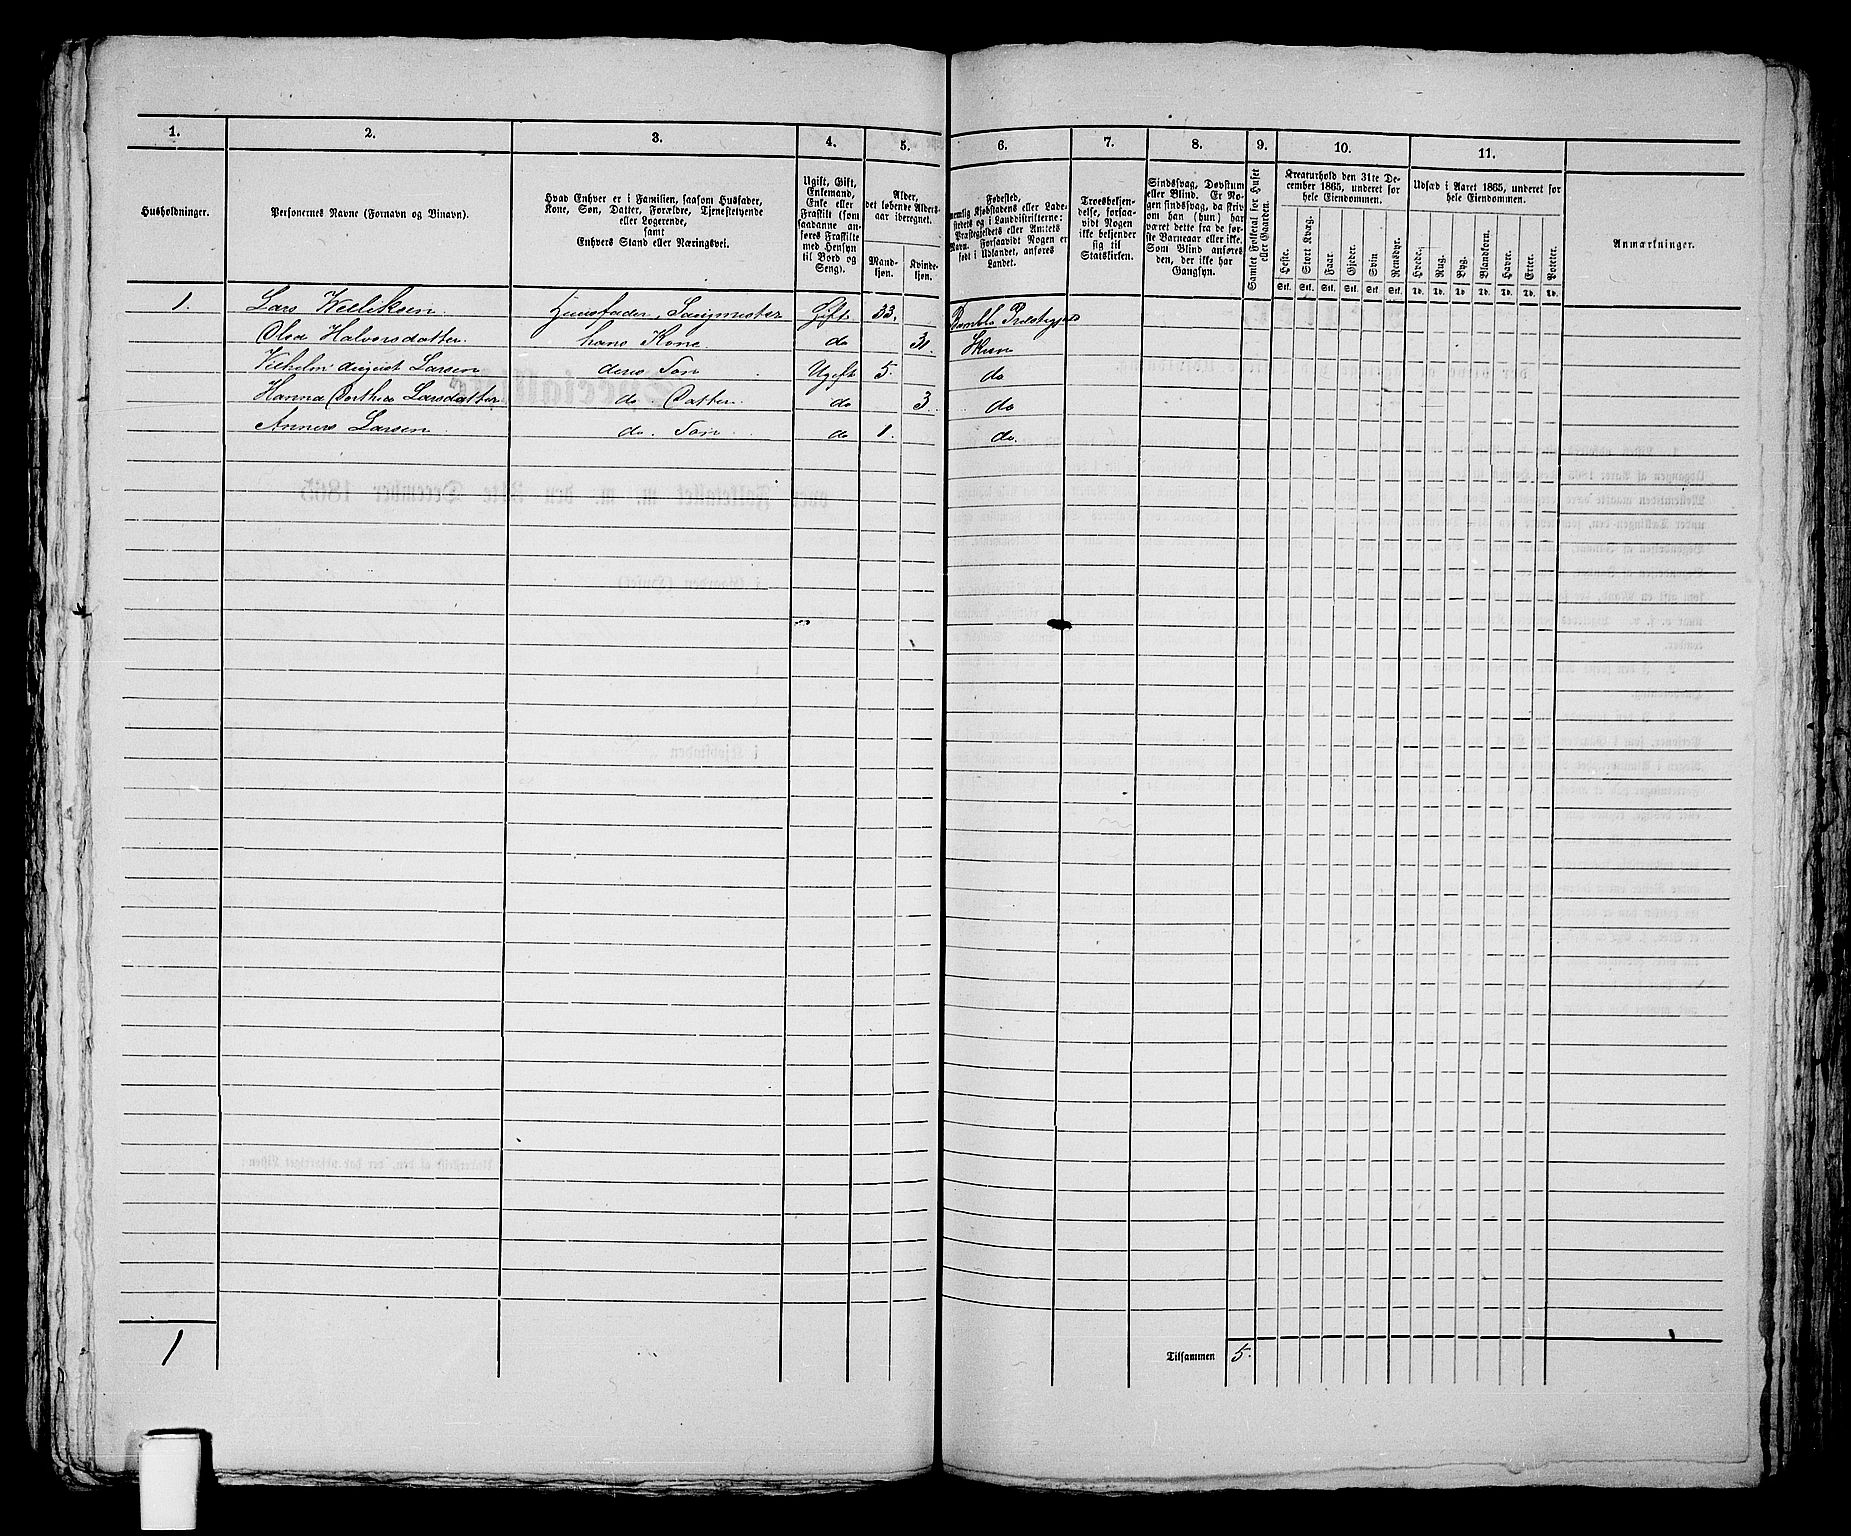 1. 2. 3. 4. 5. 6. 7. 8. 9. 10. 11.
Husholdninger.
Personernes Navne (Fornavn og Binavn).
Hvad Enhver er i Familien, saasom Husfader,
Kone, Søn, Datter, Forældre, Tjenestetyende
eller Logerende,
samt
Enhvers Stand eller Næringsvei.
Ugift, Gift,
Enkemand,
Enke eller
Fraskilt (som
saadanne an-
føres Fraskilte
med Hensyn
til Bord og
Seng).
Alder,
det løbende Alders-
aar iberegnet.
Mand-
kjøn.
Kvinde-
kjøn.
Fødested,
nemlig Kjøbstadens eller Lade-
stedets og i Landdistrikterne:
Præstegjeldets eller Amtets
Navn. Forsaavidt Nogen er
født i Udlandet, anføres
Landet.
Troesbekjen-
delse, forsaa-
vidt Nogen
ikke bekjender
sig til
Statskirken.
Sindssvag, Døvstum
eller Blind. Er No-
gen sindssvag, da skriv
om han (hun) har
været dette fra de før-
ste Barneaar eller ikke.
Som Blind anføres
den, der ikke har
Gangsyn.
Samlet Folketal for Huset
eller Gaarden.
Kreaturhold den 31te De-
cember 1865, underet for
hele Eiendommen.
Heste. Stort Kvæg. Faar. Gjeder. Svin Rensdyr.
Stk. Stk. Stk. Stk. Stk. Stk.
Udsæd i Aaret 1865, underet for
hele Eiendommen.
Hvede. Rug. Byg. Blandkorn. Havre. Erter. Poteter.
Td. Td. Td. Td. Td. Td. Td.
Anmærkninger.
1. Lars Welliksen Huusfader, Saugmester Gift 33. Bamble Præstegjeld
Olea Halvorsdatter hans Kone do 31. Skien
Vilhelm August Larsen deres Søn Ugift 5. do
Hanna Dorthea Larsdatter do Datter do 3. do
Anners Larsen do. Søn do 1. do.
1 Tilsammen 5.